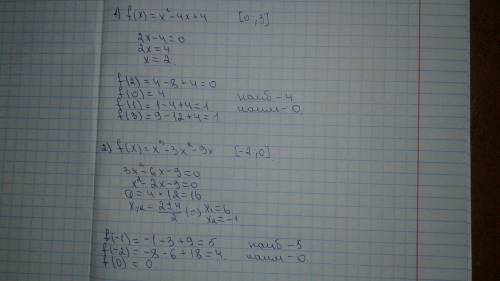 1) f(x) = x² - 4x + 4 [0, 3]
2x - 4 = 0
2x = 4
x = 2
f(2) = 4 - 8 + 4 = 0
f(0) = 4 наиб - 4
f(1) = 1 - 4 + 4 = 1 наим - 0
f(3) = 9 - 12 + 4 = 1
2) f(x) = x³ - 3x² - 9x [-2, 0]
3x² - 6x - 9 = 0
x² - 2x - 9 = 0
D = 4 + 12 = 16
x₁,₂ = (2 ± 4)/2 (=) x₁ = 6
x₂ = -1
f(-1) = -1 - 3 + 9 = 5 наиб - 5
f(-2) = -8 - 6 + 18 = 4 наим - 0
f(0) = 0